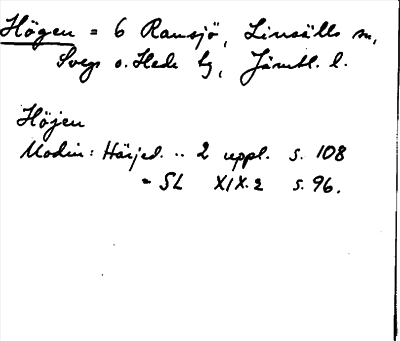 Högen = 6 Ramsjö, Linsälls sn,
Svegs o. Hede tg, Jämtl. l.
Höjen
Modin: Härjed. .. 2 uppl. s. 108
= SL XIX.2 s. 96.